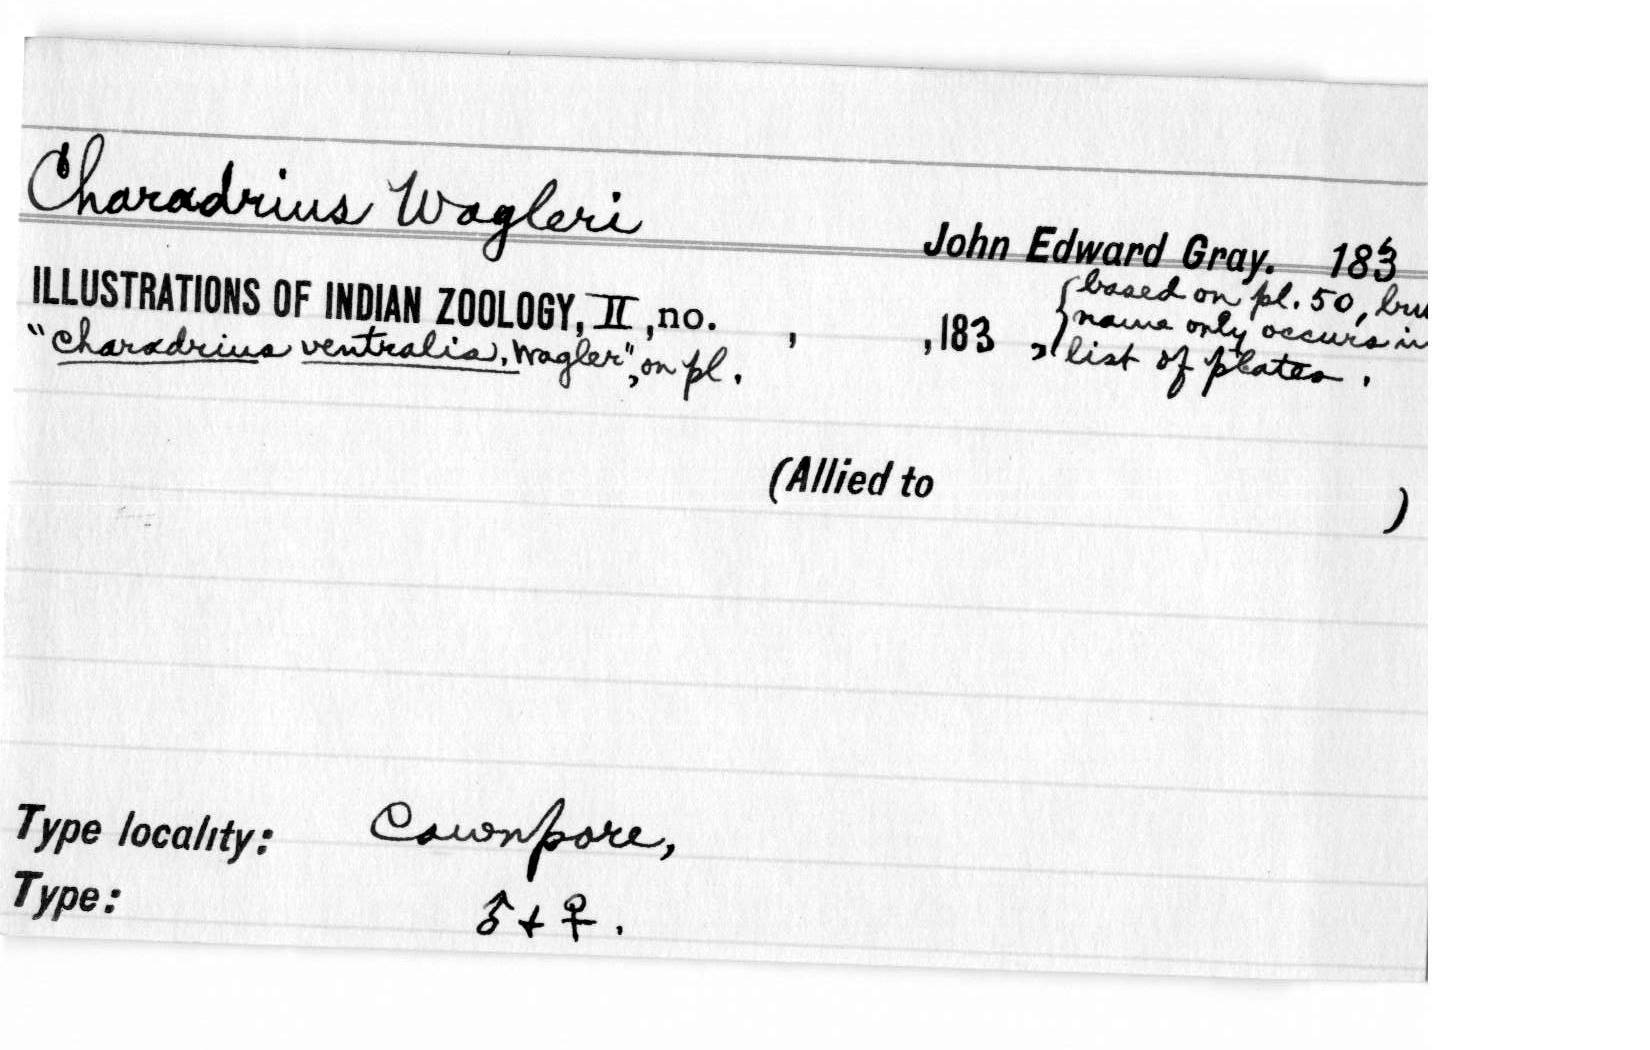 Charadrius Wagleri
John Edward Gray. 183
ILLUSTRATIONS OF INDIAN ZOOLOGY, II, no. , ,183 ,
{based on pl. 50,
name only occurs in
list of plates.
"Charadrius ventralis, Wagler", on pl.
(Allied to )
Type locality: Cawnpore,
Type: ♂ + ♀.